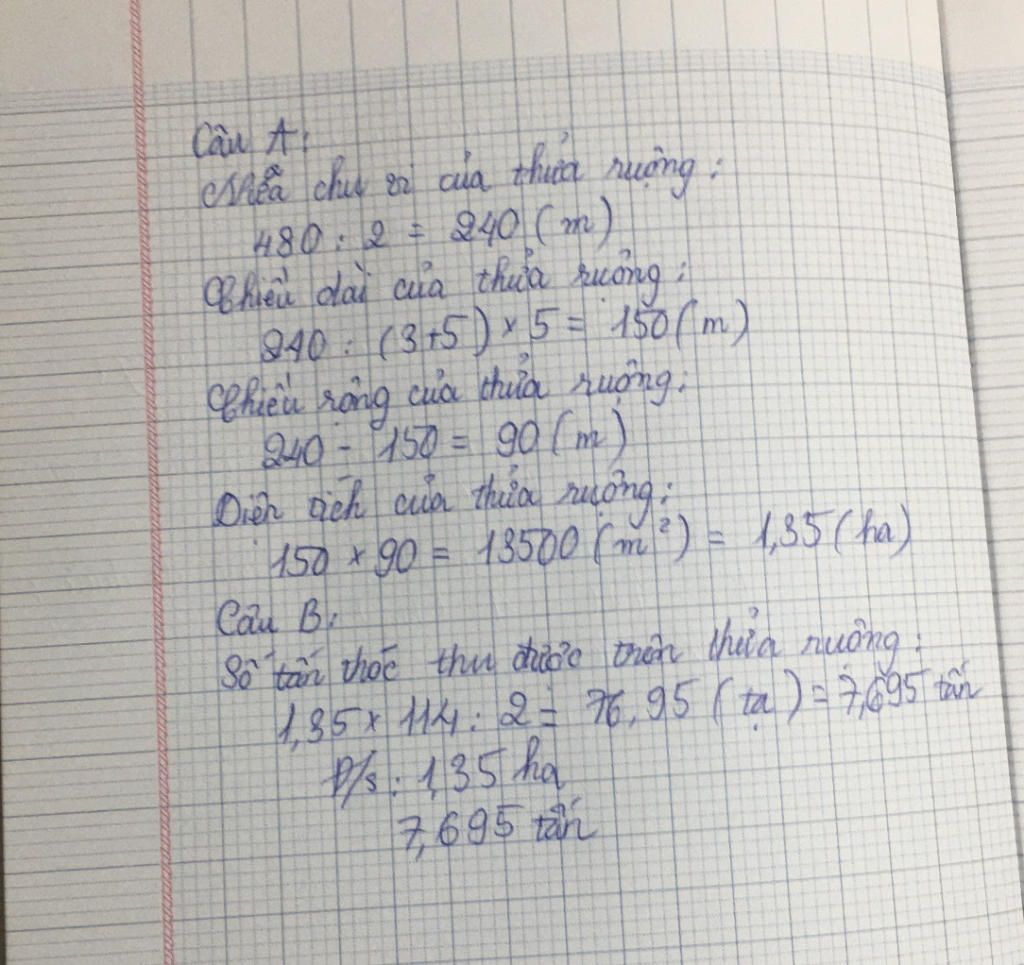 Câu A:
Nửa chu vi của thửa ruộng:
480 : 2 = 240 (m)
Chiều dài của thửa ruộng:
240 : (3+5) × 5 = 150 (m)
Chiều rộng của thửa ruộng:
240 - 150 = 90 (m)
Diện tích của thửa ruộng:
150 × 90 = 13500 (m²) = 1,35 (ha)
Câu B:
Số tấn thóc thu được trên thửa ruộng:
1,35 × 114 : 2 = 76,95 (tạ) = 7,695 tấn
Đ/s : 1,35 ha
7,695 tấn